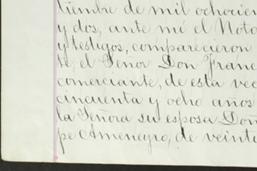 tiembre de mil ochocien
y dos, ante mí el Nota
y testigos, comparecieron
te, el Señor Don Franc
comerciante, de esta vec
cincuenta y ocho años
la Señora su esposa Doñ
pe Amenegro, de veinte